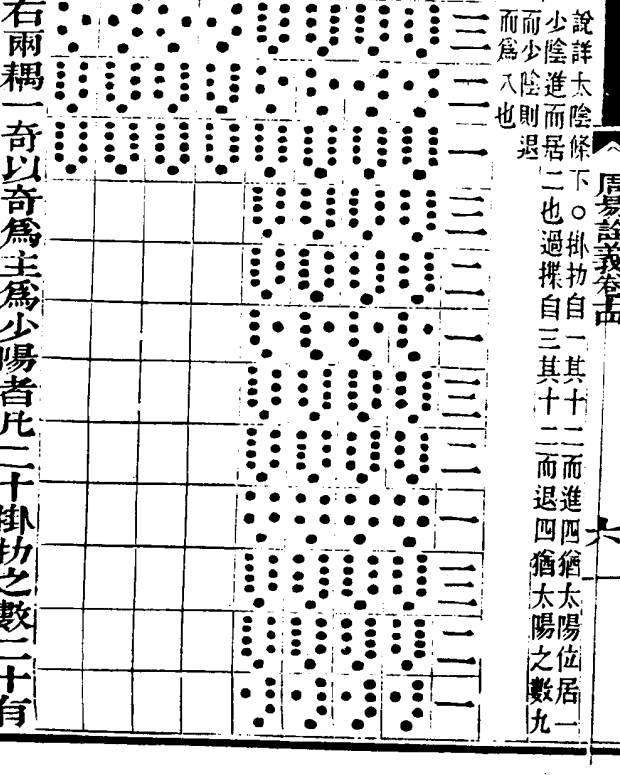 周易詮義卷十四
六
說詳太陰條下○掛扐自一其十二而進四猶太陽位居一
少陰進而居二也過揲自三其十二而退四猶太陽之數九
而少陰則退
而爲八也
三
二
一
三
二
一
三
二
一
三
二
一
右兩耦一奇以奇爲主爲少陽者凡二十掛扐之數二十有